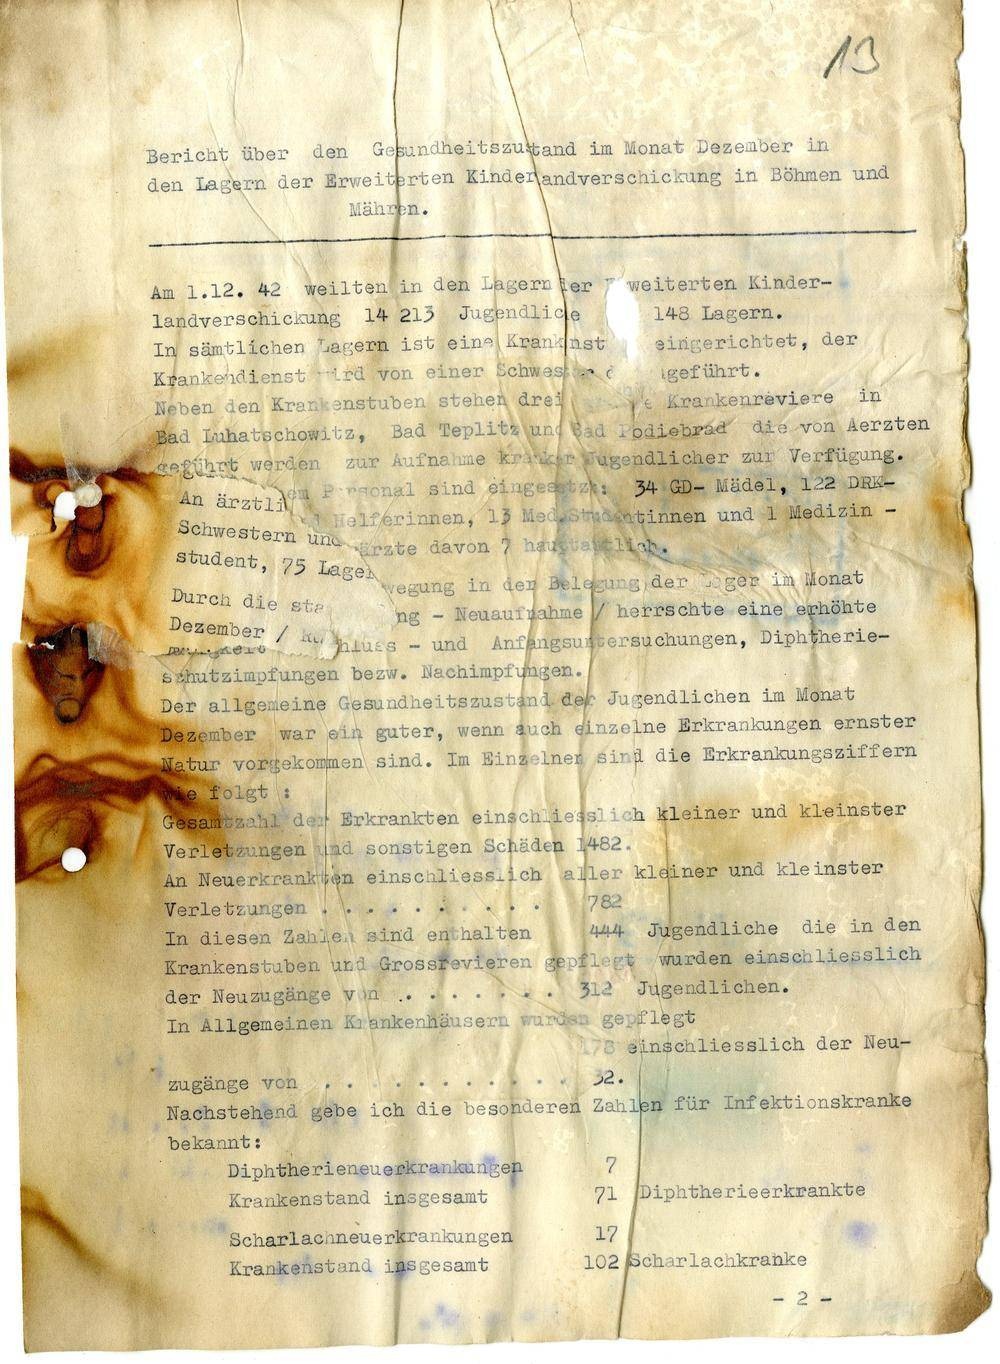 13
Bericht über den Gesundheitszustand im Monat Dezember in
den Lagern der Erweiterten Kinderlandverschickung in Böhmen und
Mähren.
Am 1.12. 42 weilten in den Lagern der Erweiterten Kinder-
landverschickung 14 213 Jugendliche 148 Lagern.
In sämtlichen Lagern ist eine eingerichtet, der
Krankendienst wird von einer
Neben den Krankenstuben stehen drei Krankenreviere in
Bad Luhatschowitz, Bad Teplitz und Bad Podiebrad die von Aerzten
geführt werden zur Aufnahme kranker Jugendlicher zur Verfügung.
An Personal sind eingesetzt: 34 GD- Mädel, 122 DRK-
Schwestern und Helferinnen, 13 Med.Studentinnen und 1 Medizin -
student, 75 davon 7 hauptamtlich.
Durch die in der Belegung der Lager im Monat
Dezember / - Neuaufnahme / herrschte eine erhöhte
- und Anfangsuntersuchungen, Diphtherie-
schutzimpfungen bezw. Nachimpfungen.
Der allgemeine Gesundheitszustand der Jugendlichen im Monat
Dezember war ein guter, wenn auch einzelne Erkrankungen ernster
Natur vorgekommen sind. Im Einzelnen sind die Erkrankungsziffern
wie folgt :
Gesamtzahl der Erkrankten einschliesslich kleiner und kleinster
Verletzungen und sonstigen Schäden 1482.
An Neuerkrankten einschliesslich aller kleiner und kleinster
Verletzungen . . . . . . . . . . 782
In diesen Zahlen sind enthalten 444 Jugendliche die in den
Krankenstuben und Grossrevieren gepflegt wurden einschliesslich
der Neuzugänge von . . . . . . . . 312 Jugendlichen.
In Allgemeinen Krankenhäusern wurden gepflegt
178 einschliesslich der Neu-
zugänge von . . . . . . . . . . .
Nachstehend gebe ich die besonderen Zahlen für Infektionskranke
bekannt:
Diphtherieneuerkrankungen 7
Krankenstand insgesamt 71 Diphtherieerkrankte
Scharlachneuerkrankungen 17
Krankenstand insgesamt 102 Scharlachkranke
- 2 -